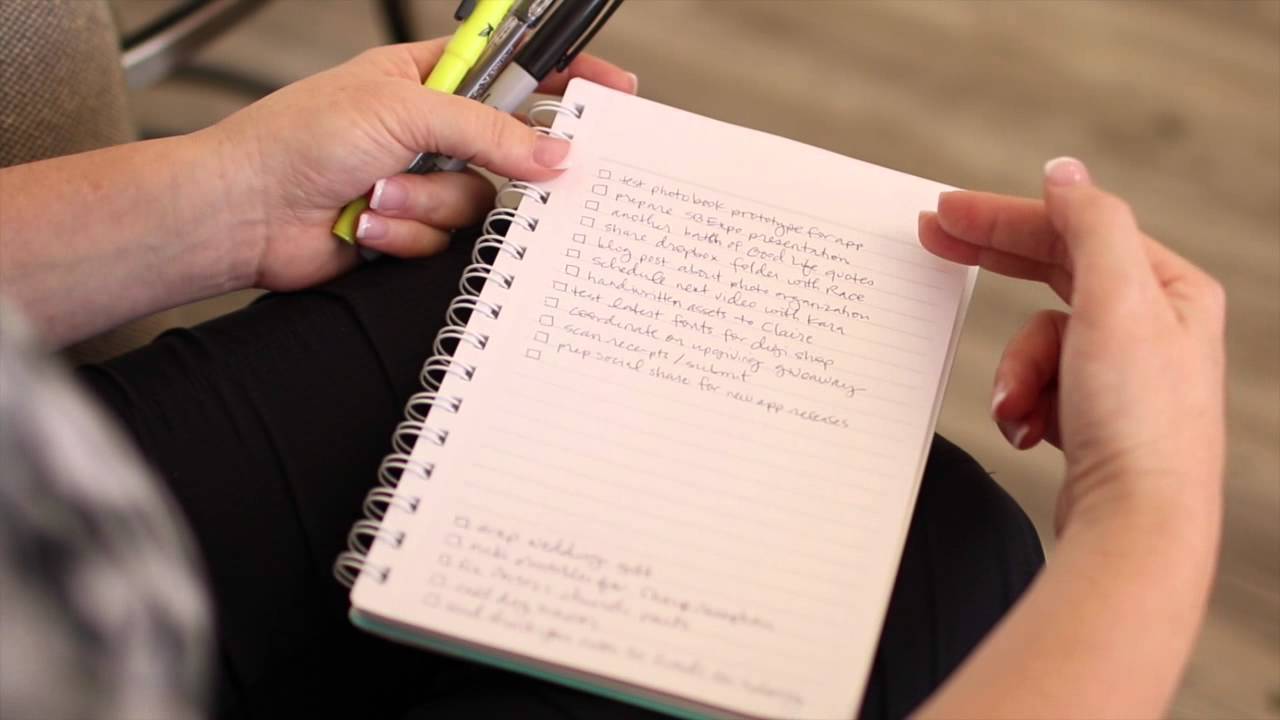 ☐ test photobook prototype for app
☐ prepare SB Expo presentation
☐ another batch of Good Life quotes
☐ share dropbox folder with Race
☐ blog post about photo organization
☐ schedule next video with Kara
☐ handwritten assets to Claire
☐ test latest fonts for digi shop
☐ coordinate on upgiving giveaway
☐ scan receipts/submit
☐ prep social share for new app releases
☐ wrap wedding gift
☐ make
☐
☐ call dog
☐ and